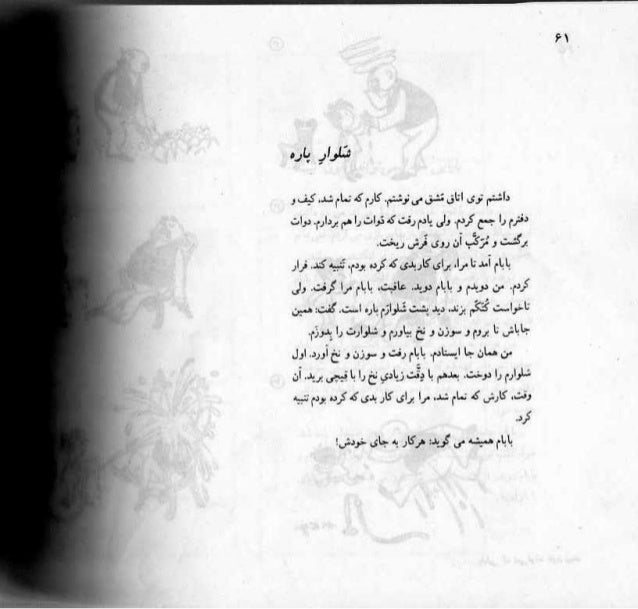 ۶۱
شلوارِ پاره
داشتم توی اتاق مَشق می نوشتم. کارم که تمام شد، کیف و
دفترم را جمع کردم. ولی یادم رفت که دَوات را هم بردارم. دوات
برگشت و مُرَکَّبِ آن روی فَرش ریخت.
بابام آمد تا مرا، برای کار بدی که کرده بودم، تَنبیه کند. فرار
کردم. من دویدم و بابام دوید. عاقبت، بابام مرا گرفت. ولی
تا خواست کُتَکَم بزند، دید پشت شَلوارم پاره است. گفت: همین
جا باش تا بروم و سوزن و نخ بیاورم و شلوارت را بِدوزَم.
من همان جا ایستادم. بابام رفت و سوزن و نخ آورد. اول
شلوارم را دوخت. بعدهم با دِقَّت زیادیِ نخ را با قیچی برید. آن
وقت، کارش که تمام شد، مرا برای کار بدی که کرده بودم تنبیه
کرد.
بابام همیشه می گوید: هر کار به جای خودش!